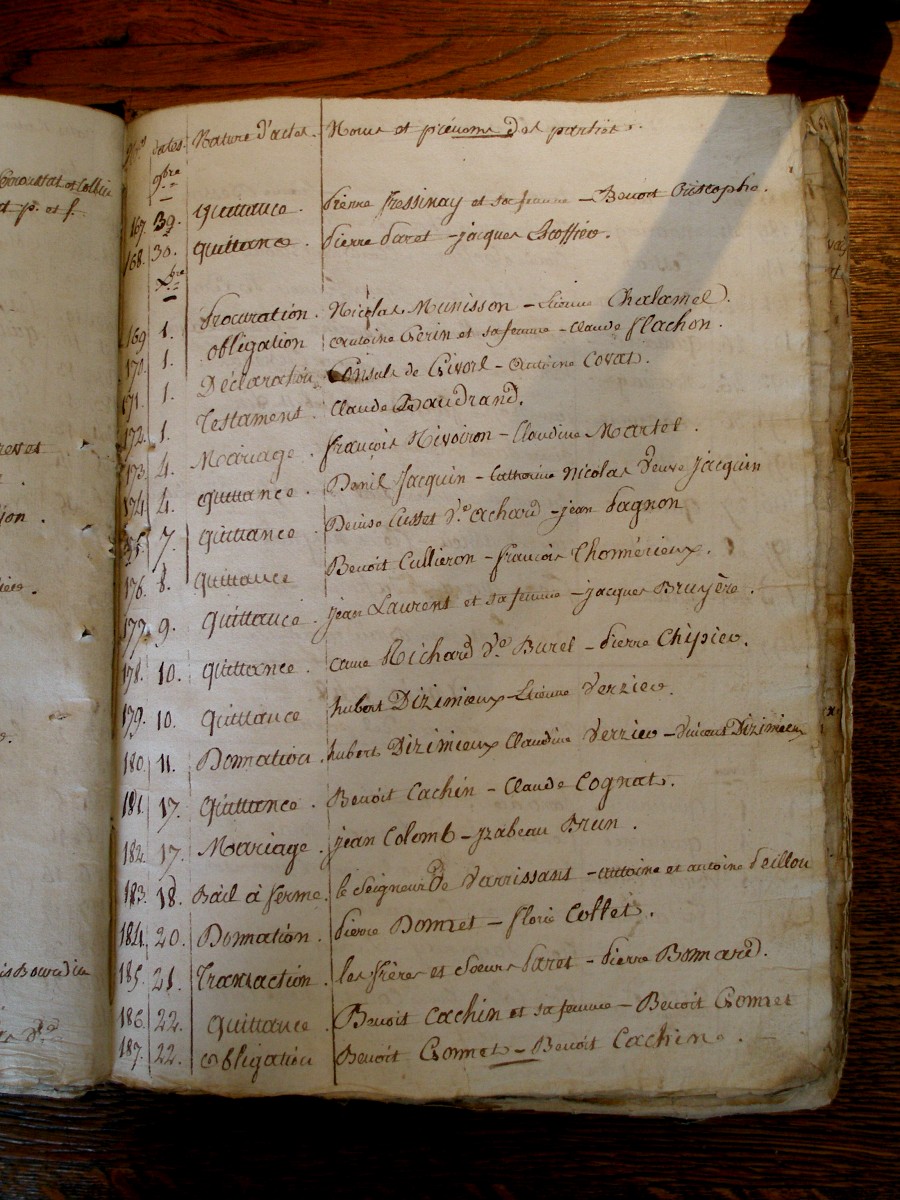 Croussat et Collin
at p. et f.
revet
ion.
is Bourdin
N.os dates. Nature d'actes. Noms et prénoms des parties.
9bre
167. 30. Quittance. Pierre Fressinay et sa femme - Benoit Criscophe.
168. 30. Quittance. Pierre Paret - jacques Escoffier.
Xbre
169 1. Procuration. Nicolas Munisson - Etienne Chalamel.
170. 1. obligation Antoine Gerin et sa femme - Claude flachon.
171. 1. Déclaration. Consuls de Givors - Antoine Covat.
172. 1. Testament. Claude Baudrand.
173. 4. Mariage. françois Nivoiron - Claudine Martel.
174 4. quittance. Denil Jacquin - Catherine Nicolas Veuve Jacquin
175. 7. Quittance Denise Cusset Ve. achard - jean Pagnon
176. 8. Quittance Benoit Cullieron - françois Thomérieux.
177. 9. Quittance. jean Laurens et sa femme - jacques Bruyère.
178. 10. Quittance. anne Richard Ve. Burel - Pierre Chipier.
179. 10. Quittance hubert Dizimieux - Etienne Verzier.
180. 11. Donnation. hubert Dizimieux Claudine Verzier - Vincent Dizimieux
181. 17. Quittance. Benoit Cachin - Claude Cognat.
182. 17. Mariage. jean Colomb - Yzabeau Brun.
183. 18. Bail à ferme. le Seigneur de Varrissans - antoine et antoine Peillon
184. 20. Donnation. Pierre Donnet - florie Collet.
185. 21. Transaction. les frères et Soeurs Paret - Pierre Bonnard.
186. 22. Quittance. Benoit Cachin et sa femme - Benoit Gonnet
187. 22. obligation Benoit Gonnet - Benoit Cachin.